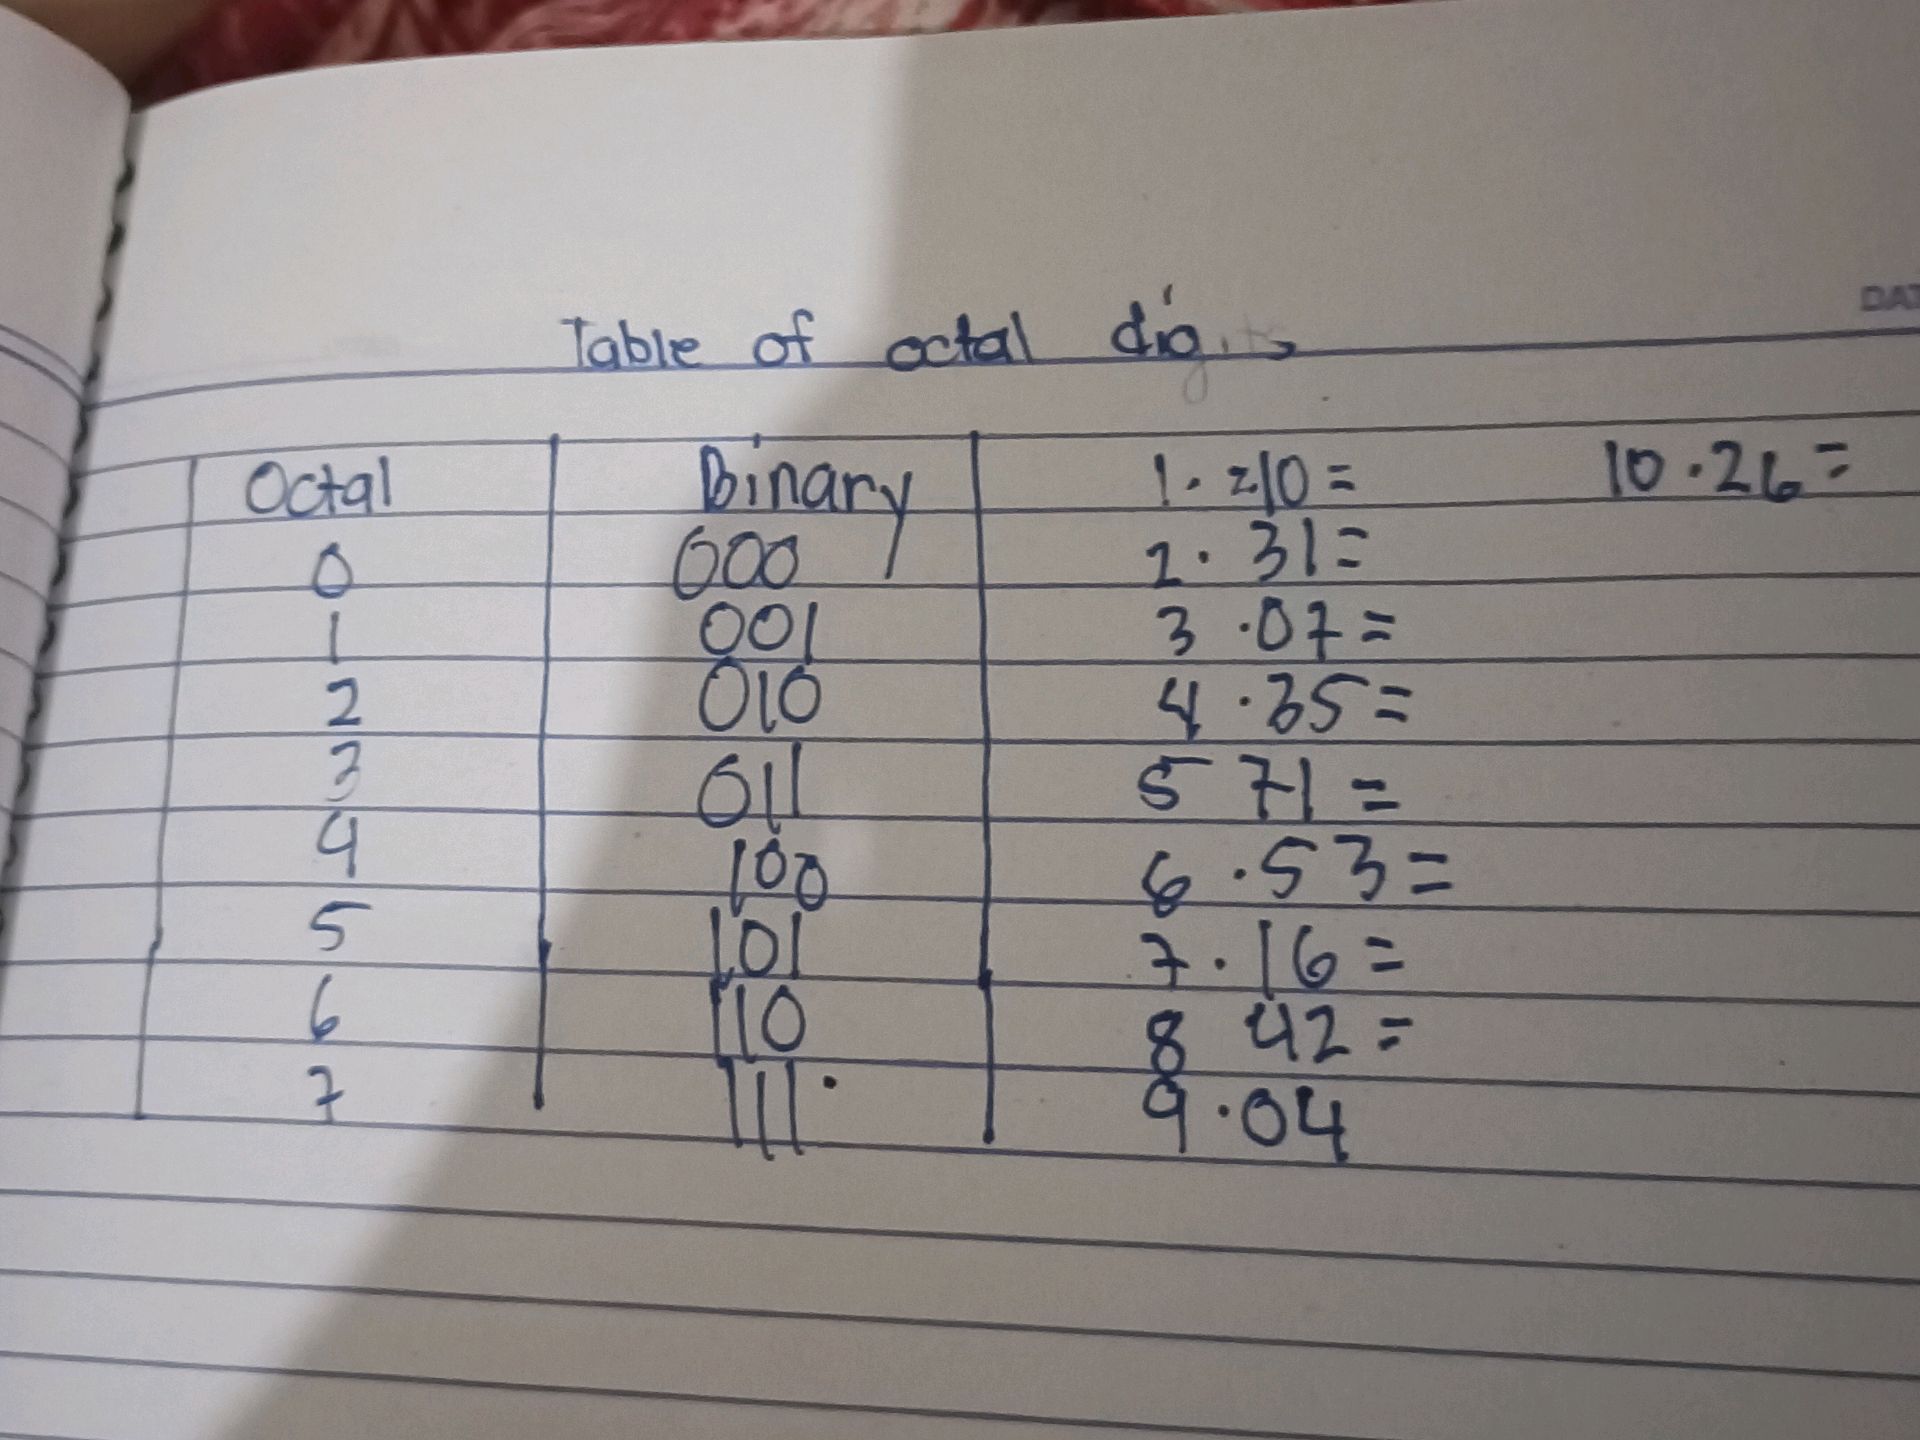 DAT
Table of octal digits
Octal Binary 1. 210 = 10.26 =
0 000 2. 31 =
1 001 3 .07 =
2 010 4 .35 =
3 011 5 71 =
4 100 6 .53 =
5 101 7. 16 =
6 110 8 42 =
7 111. 9.04